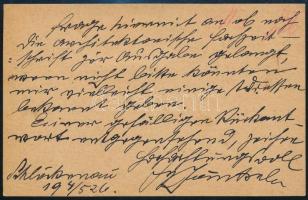 frage hiermit an, ob noch
die architektonische Zeit
schrift zur Ausgabe gelangt,
wenn nicht bitte könnten
mir vielleicht einige Adressen
bekannt geben.
Einer gefälligen Rückant
wort entgegensehend, zeichne
Hochachtungsvoll
19 526.